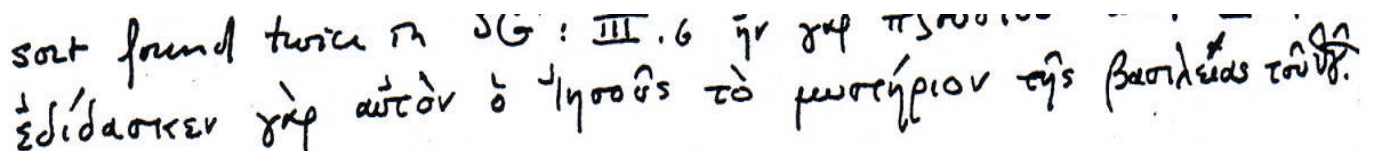 sort found twice in SG : III.6 ἦν γὰρ πλούσιος
ἐδίδασκεν γὰρ αὐτὸν ὁ Ἰησοῦς τὸ μυστήριον τῆς βασιλείας τοῦ